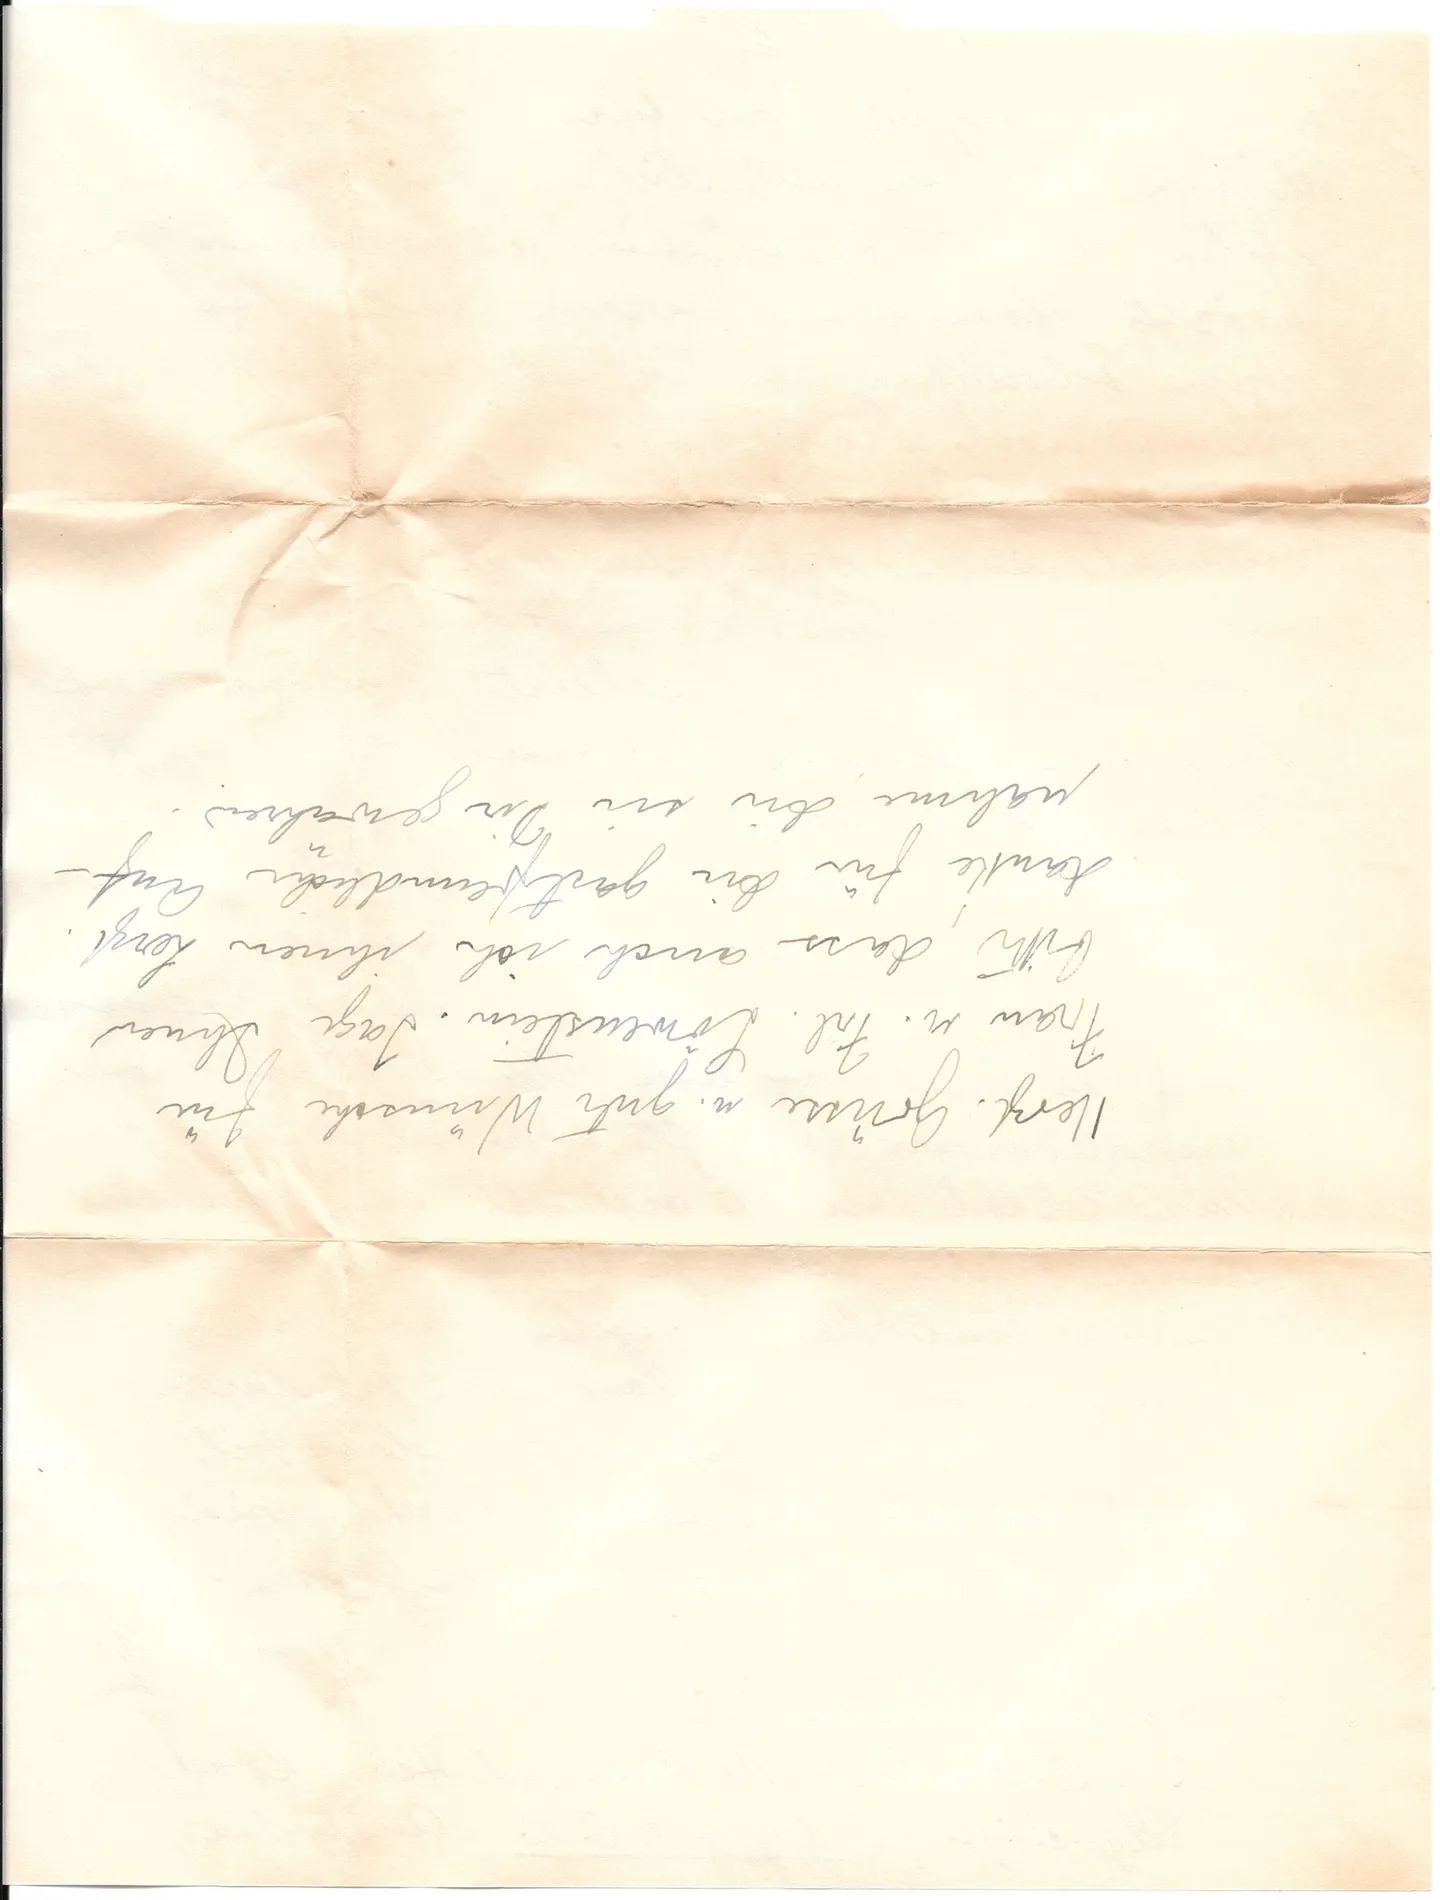 Herzl. Grüsse u. gute Wünsche für
Frau u. Frl. Löwenstein. Sage Ihnen
bitte, dass auch ich ihnen herzl.
danke für die gastfreundliche Auf-
nahme, die sie Dir gewähren.